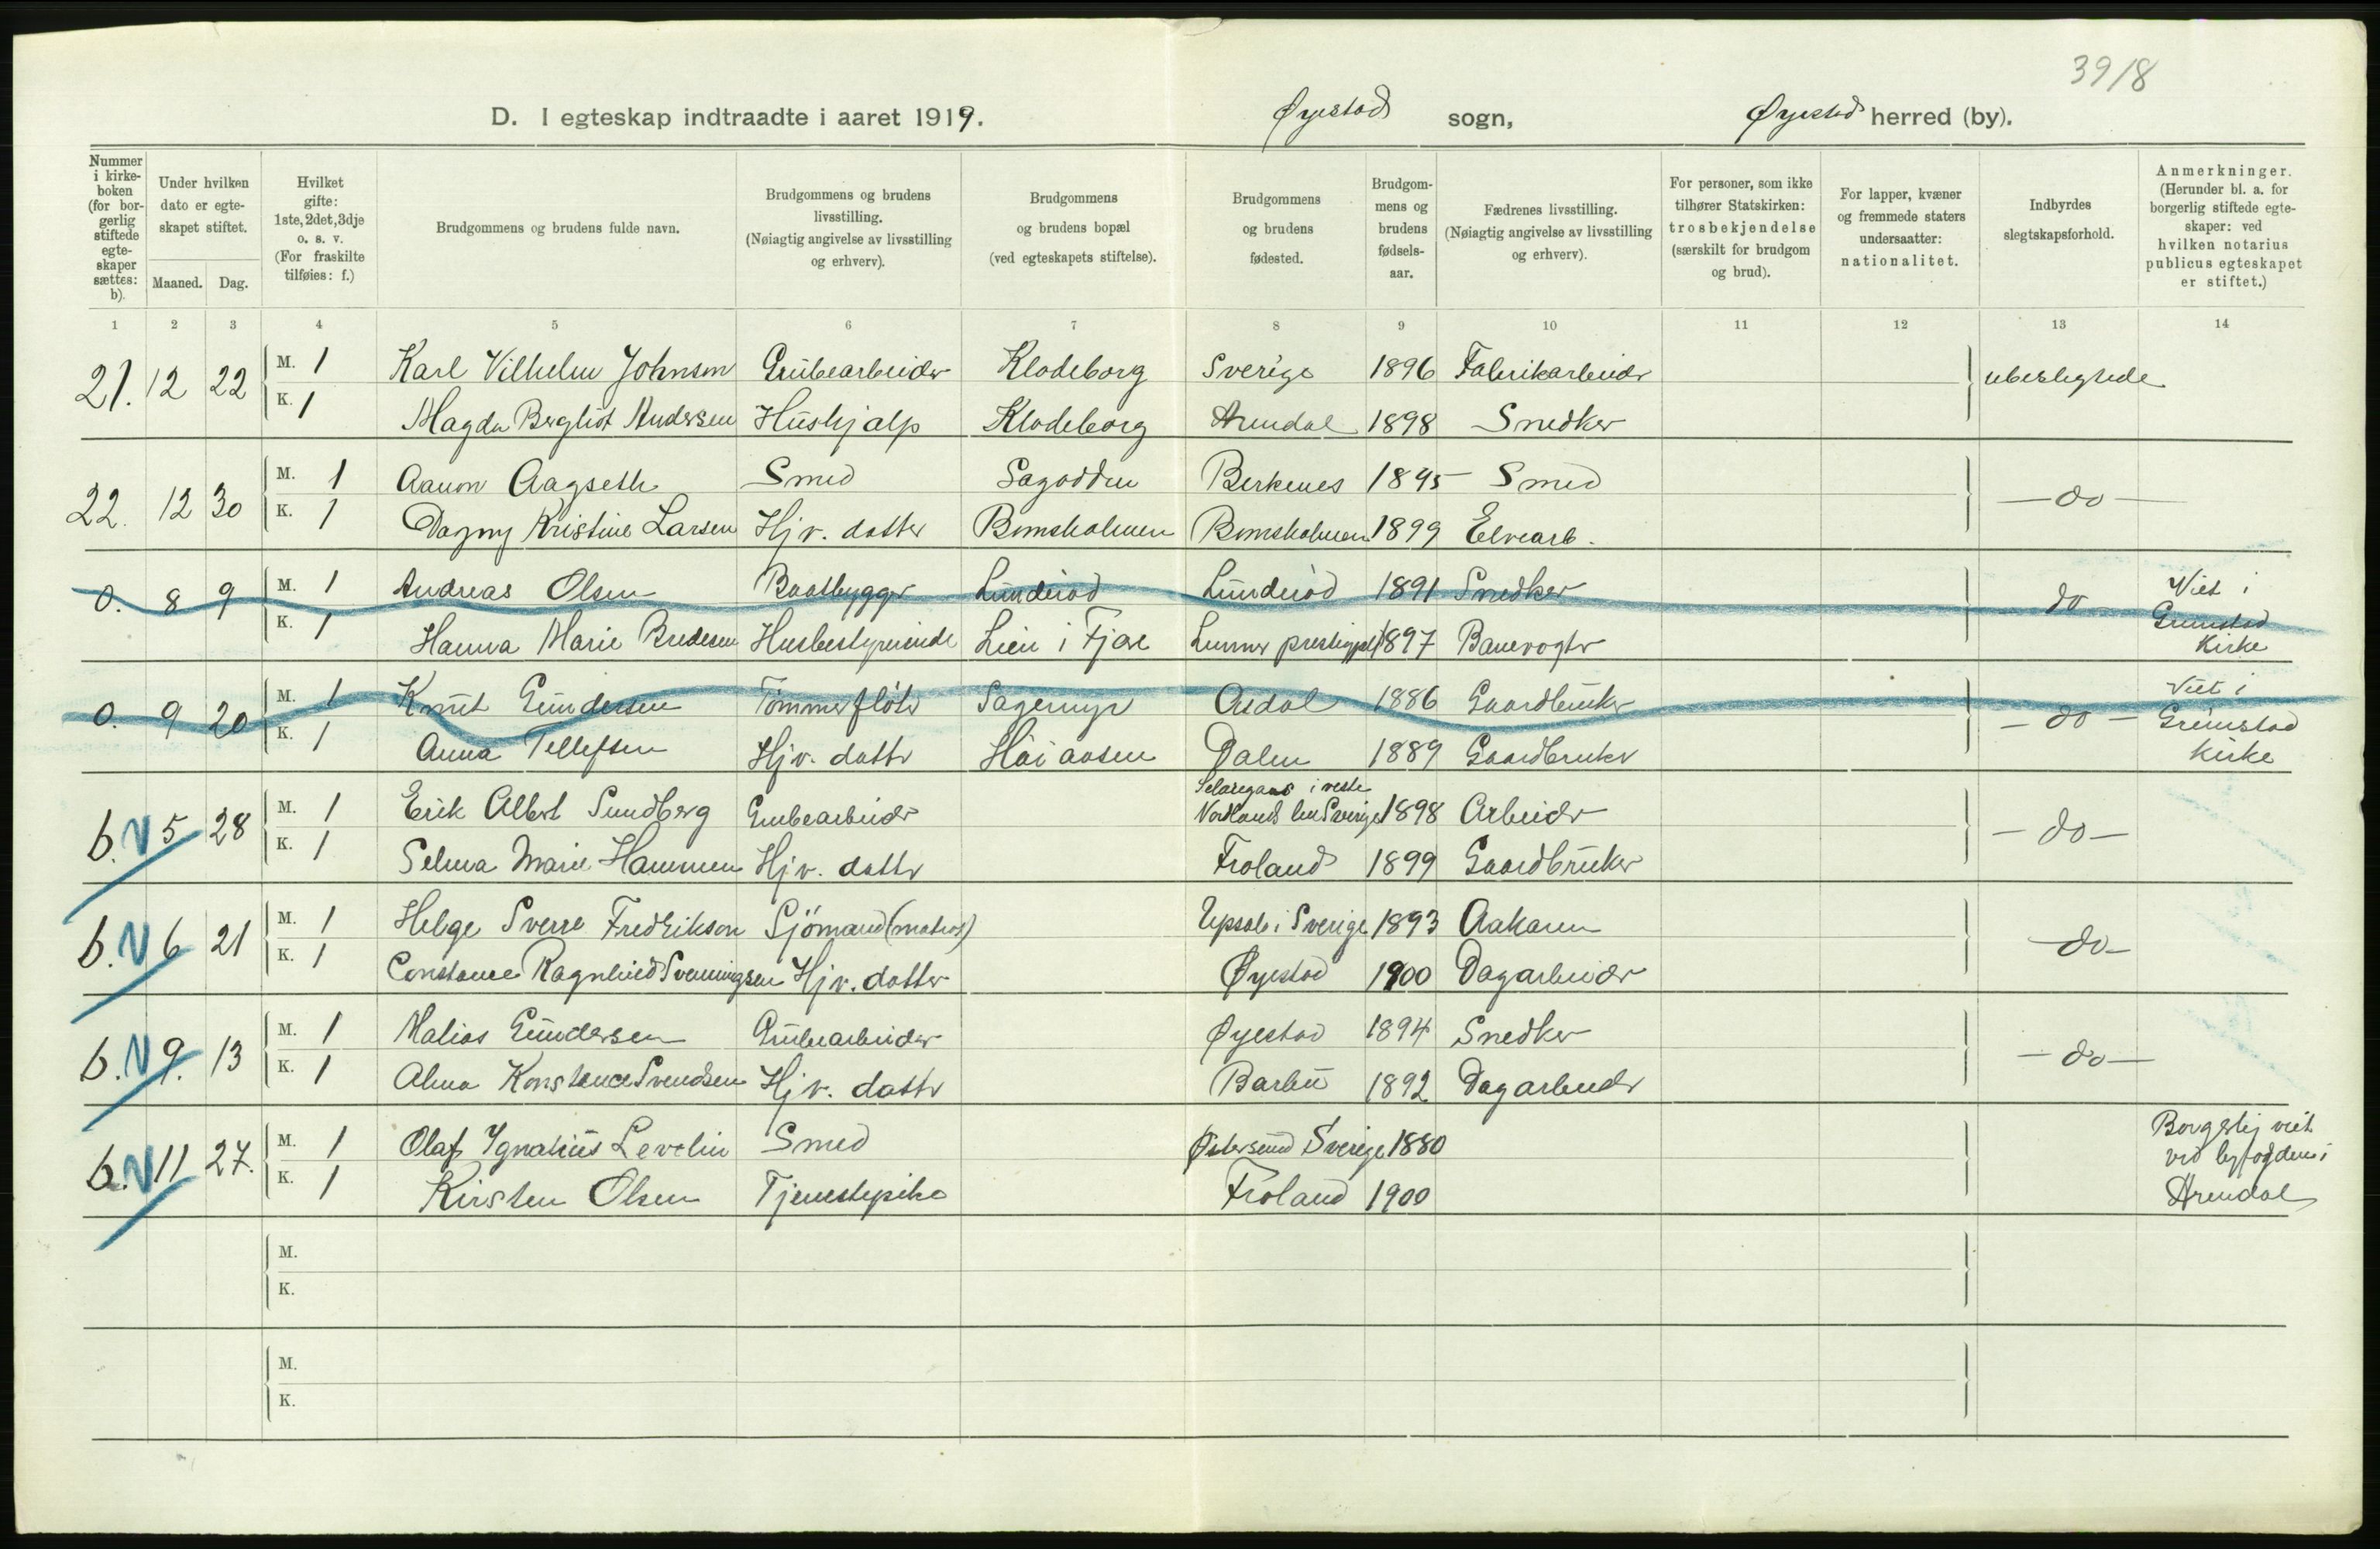 3918
D. I egteskap indtraadte i aaret 1919. Øyestad sogn, Øyestad herred (by).
Nummer i kirke-boken (for bor-gerlig stiftede egte-skaper sættes: b).
Under hvilken dato er egte-skapet stiftet.
Maaned. Dag.
Hvilket gifte: 1ste, 2det, 3dje o. s. v. (For fraskilte tilføies: f.)
Brudgommens og brudens fulde navn.
Brudgommens og brudens livsstilling. (Nøiagtig angivelse av livsstilling og erhverv).
Brudgommens og brudens bopæl (ved egteskapets stiftelse).
Brudgommens og brudens fødested.
Brudgom-mens og brudens fødsels-aar.
Fædrenes livsstilling. (Nøiagtig angivelse av livsstilling og erhverv).
For personer, som ikke tilhører Statskirken: trosbekjendelse (særskilt for brudgom og brud).
For lapper, kvæner og fremmede staters undersaatter: nationalitet.
Indbyrdes slegtskapsforhold.
Anmerkninger. (Herunder bl. a. for borgerlig stiftede egte-skaper: ved hvilken notarius publicus egteskapet er stiftet.)
1 2 3 4 5 6 7 8 9 10 11 12 13 14
21. 12 22 M. 1 Karl Vilhelm Johnson Grubearbeider Klodeborg Sverige 1896 Fabrikarbeider ubeslegtede
K. 1 Magda Bergliot Andersen Hushjælp Klodeborg Arendal 1898 Snedker
22. 12 30 M. 1 Aanon Aagseth Smed Sagodden Berkenes 1895 Smed - do -
K. 1 Dagny Kristine Larsen Hjv. datter Bomsholmen Bomsholmen 1899 Elvearb.
0. 8 9 M. 1 Andreas Olsen Baatbygger Lunderød Lunderød 1891 Snedker do Viet i Grimstad Kirke
K. 1 Hanna Marie Bredesen Husbestyrerinde Lien i Fjære Lunner 1897 Banevogter
0. 9 20 M. 1 Knut Gundersen Tømmerfløter Sagemyr Osdal 1886 Gaardbruker - do - Viet i Grimstad Kirke
K. 1 Anna Tellefsen Hjv. datter Høiaasen Dalen 1889 Gaardbruker
b. N 5 28 M. 1 Erik Albert Sundberg Grubearbeider i vestre Norrlands len Sverige 1898 Arbeider - do -
K. 1 Selma Marie Hammen Hjv. datter Froland 1899 Gaardbruker
b. N 6 21 M. 1 Helge Sverre Fredrikson Sjömand (matros) Upsala i Sverige 1893 Aakaren - do -
K. 1 Constance Ragnhild Svenningsen Hjv. datter Øyestad 1900 Dagarbeider
b. N 9. 13 M. 1 Matias Gundersen Grubearbeider Øyestad 1894 Snedker - do -
K. 1 Alma Konstance Svendsen Hjv. datter Barbu 1892 Dagarbeider
b. N 11 27. M. 1 Olaf Ygnatius Levelin Smed Østersund Sverige 1880 Borgerlig viet ved byfogden i Arendal
K. 1 Kirsten Olsen Tjenestepike Froland 1900
M.
K.
M.
K.